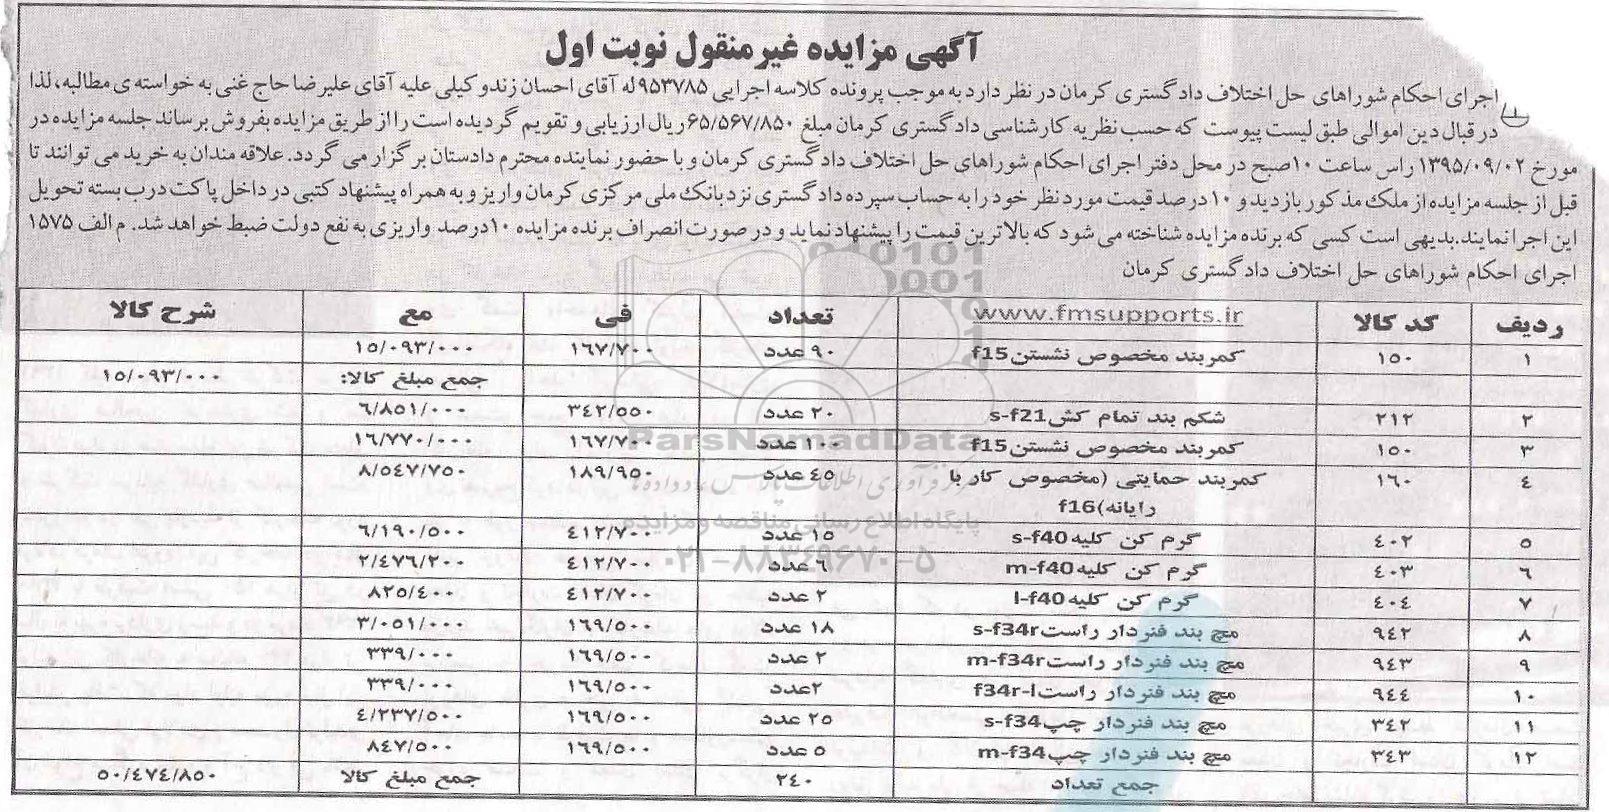 آگهی مزایده غیرمنقول نوبت اول
اجرای احکام شوراهای حل اختلاف دادگستری کرمان در نظر دارد به موجب پرونده کلاسه اجرایی ۹۵۳۷۸۵ له آقای احسان زندوکیلی علیه آقای علیرضا حاج غنی به خواسته ی مطالبه، لذا
در قبال دین اموالی طبق لیست پیوست که حسب نظریه کارشناسی دادگستری کرمان مبلغ ۶۵/۵۶۷/۸۵۰ ریال ارزیابی و تقویم گردیده است را از طریق مزایده بفروش برساند جلسه مزایده در
مورخ ۱۳۹۵/۰۹/۰۲ راس ساعت ۱۰ صبح در محل دفتر اجرای احکام شوراهای حل اختلاف دادگستری کرمان و با حضور نماینده محترم دادستان برگزار می گردد. علاقه مندان به خرید می توانند تا
قبل از جلسه مزایده از ملک مذکور بازدید و ۱۰ درصد قیمت مورد نظر خود را به حساب سپرده دادگستری نزد بانک ملی مرکزی کرمان واریز و به همراه پیشنهاد کتبی در داخل پاکت درب بسته تحویل
این اجرا نمایند. بدیهی است کسی که برنده مزایده شناخته می شود که بالاترین قیمت را پیشنهاد نماید و در صورت انصراف برنده مزایده ۱۰ درصد واریزی به نفع دولت ضبط خواهد شد. م الف ۱۵۷۵
اجرای احکام شوراهای حل اختلاف دادگستری کرمان
ردیف کد کالا www.fmsupports.ir تعداد فی مع شرح کالا
۱ ۱۵۰ کمربند مخصوص نشستن f15 ۹۰ عدد ۱۶۷/۷۰۰ ۱۵/۰۹۳/۰۰۰
جمع مبلغ کالا: ۱۵/۰۹۳/۰۰۰
۲ ۲۱۲ شکم بند تمام کش s-f21 ۲۰ عدد ۳۴۲/۵۵۰ ۶/۸۵۱/۰۰۰
۳ ۱۵۰ کمربند مخصوص نشستن f15 ۱۰۰ عدد ۱۶۷/۷۰۰ ۱۶/۷۷۰/۰۰۰
۴ ۱۶۰ کمربند حمایتی (مخصوص کار با ۴۵ عدد ۱۸۹/۹۵۰ ۸/۵۴۷/۷۵۰
رایانه) f16
۵ ۴۰۲ گرم کن کلیه s-f40 ۱۵ عدد ۴۱۲/۷۰۰ ۶/۱۹۰/۵۰۰
۶ ۴۰۳ گرم کن کلیه m-f40 ۶ عدد ۴۱۲/۷۰۰ ۲/۴۷۶/۲۰۰
۷ ۴۰۴ گرم کن کلیه l-f40 ۲ عدد ۴۱۲/۷۰۰ ۸۲۵/۴۰۰
۸ ۹۴۲ مچ بند فنردار راست s-f34r ۱۸ عدد ۱۶۹/۵۰۰ ۳/۰۵۱/۰۰۰
۹ ۹۴۳ مچ بند فنردار راست m-f34r ۲ عدد ۱۶۹/۵۰۰ ۳۳۹/۰۰۰
۱۰ ۹۴۴ مچ بند فنردار راست f34r-l ۲ عدد ۱۶۹/۵۰۰ ۳۳۹/۰۰۰
۱۱ ۳۴۲ مچ بند فنردار چپ s-f34 ۲۵ عدد ۱۶۹/۵۰۰ ۴/۲۳۷/۵۰۰
۱۲ ۳۴۳ مچ بند فنردار چپ m-f34 ۵ عدد ۱۶۹/۵۰۰ ۸۴۷/۵۰۰
جمع تعداد ۲۴۰ جمع مبلغ کالا ۵۰/۴۷۴/۸۵۰
ParsNamadData
پایگاه اطلاع رسانی مناقصه و مزایده
۰۲۱-۸۸۳۴۹۶۷۰-۵